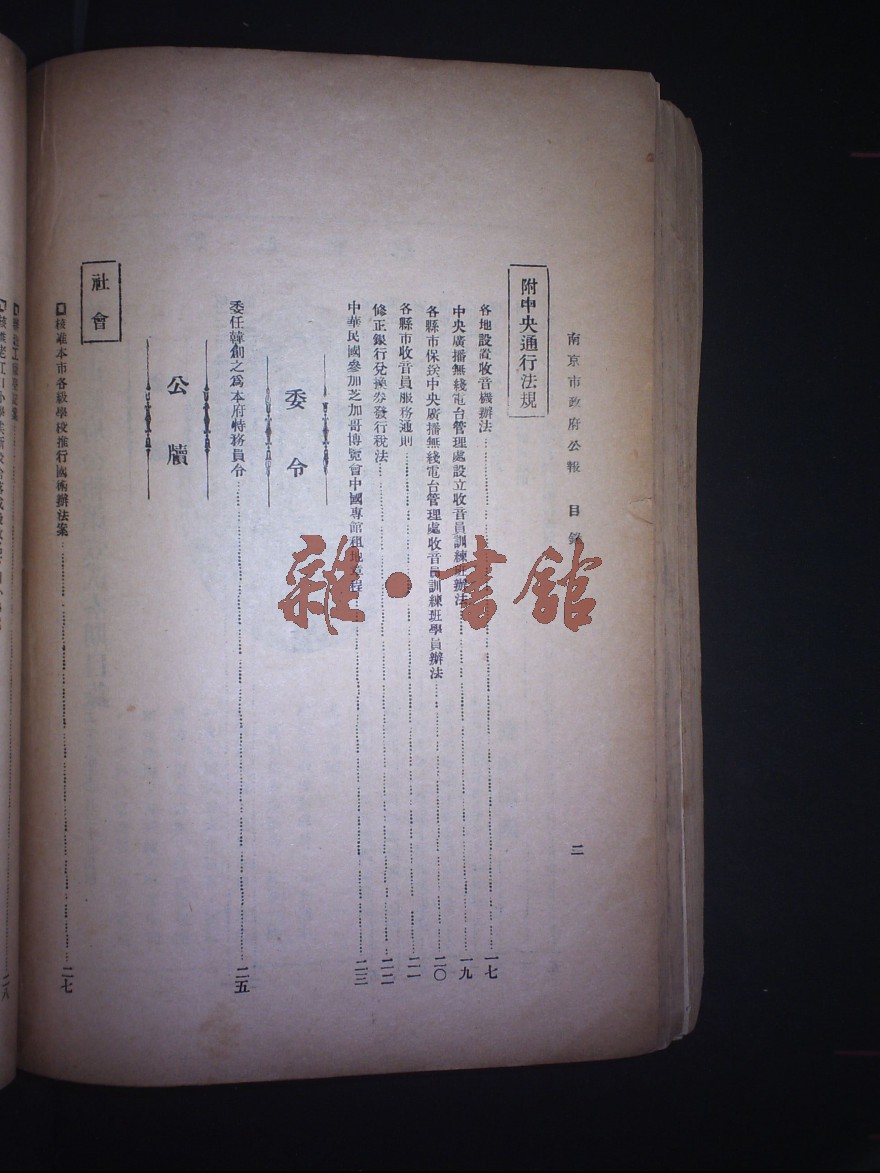 南京市政府公報 目錄 二
附中央通行法規
各地設置收音機辦法 一七
中央廣播無綫電台管理處設立收音員訓練班辦法 一九
各縣市保送中央廣播無綫電台管理處收音員訓練班學員辦法 二〇
各縣市收音員服務通則 二一
修正銀行兌換券發行稅法 二二
中華民國參加芝加哥博覽會中國專館租地章程 二三
委令
委任韓創之爲本府特務員令 二五
公牘
社會
核准本市各級學校推行國術辦法案 二七
二八
雜·書館